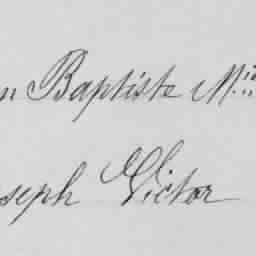 n Baptiste
seph Victor